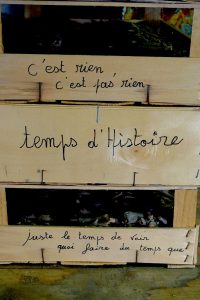 C'est rien
c'est pas rien
temps d'Histoire
juste le temps de voir
quoi faire du temps que